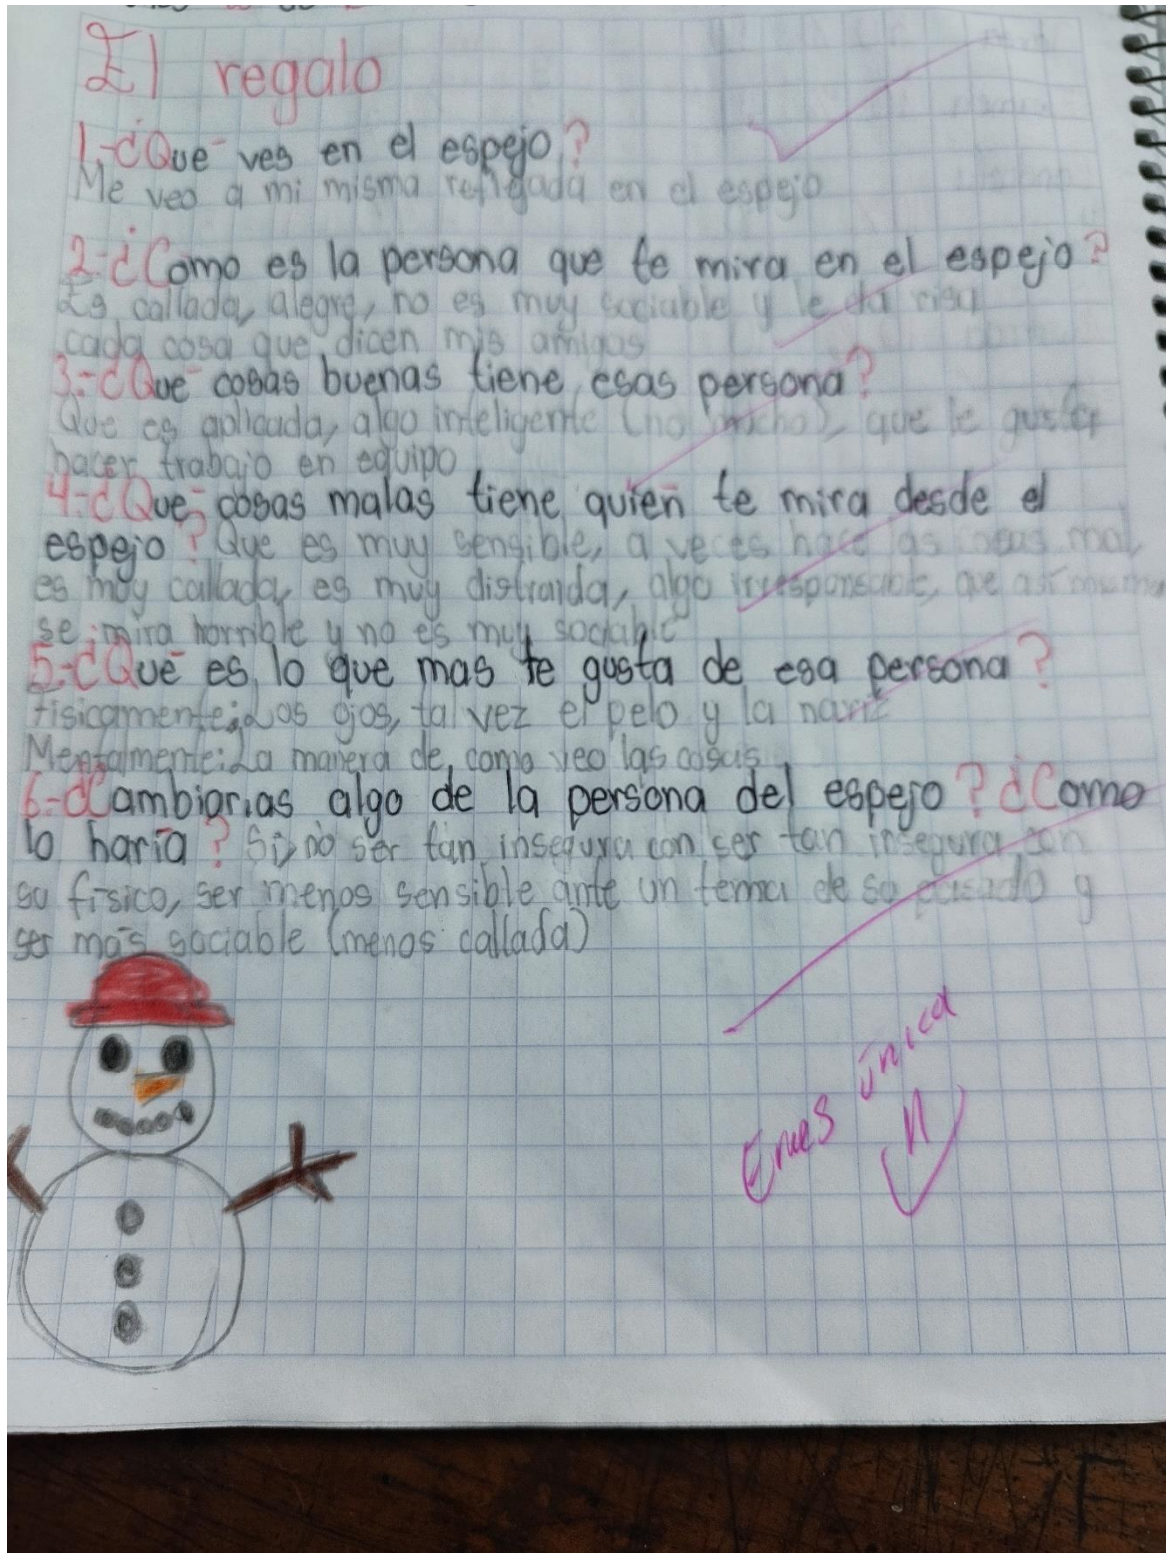 El regalo
1.-¿Que ves en el espejo?
Me veo a mi misma reflejada en el espejo
2-¿Como es la persona que te mira en el espejo?
Es callada, alegre, no es muy sociable y le da risa
cada cosa que dicen mis amigos
3.-¿Que cosas buenas tiene esas persona?
Que es aplicada, algo inteligente (no mucho), que le gusta
hacer trabajo en equipo
4-¿Que cosas malas tiene quien te mira desde el
espejo? Que es muy sensible, a veces hace las cosas mal
es muy callada, es muy distraida, algo irresponsable, que
se mira horrible y no es muy sociable
5-¿Que es lo que mas te gusta de esa persona?
Fisicamente: Los ojos, tal vez el pelo y la nariz
Mentalmente: La manera de como veo las cosas
6-¿Cambiarias algo de la persona del espejo? ¿Como
lo haría? Si, no ser tan insegura con ser tan insegura con
su físico, ser menos sensible ante un tema de su pasado y
ser más sociable (menos callada)
Eres única